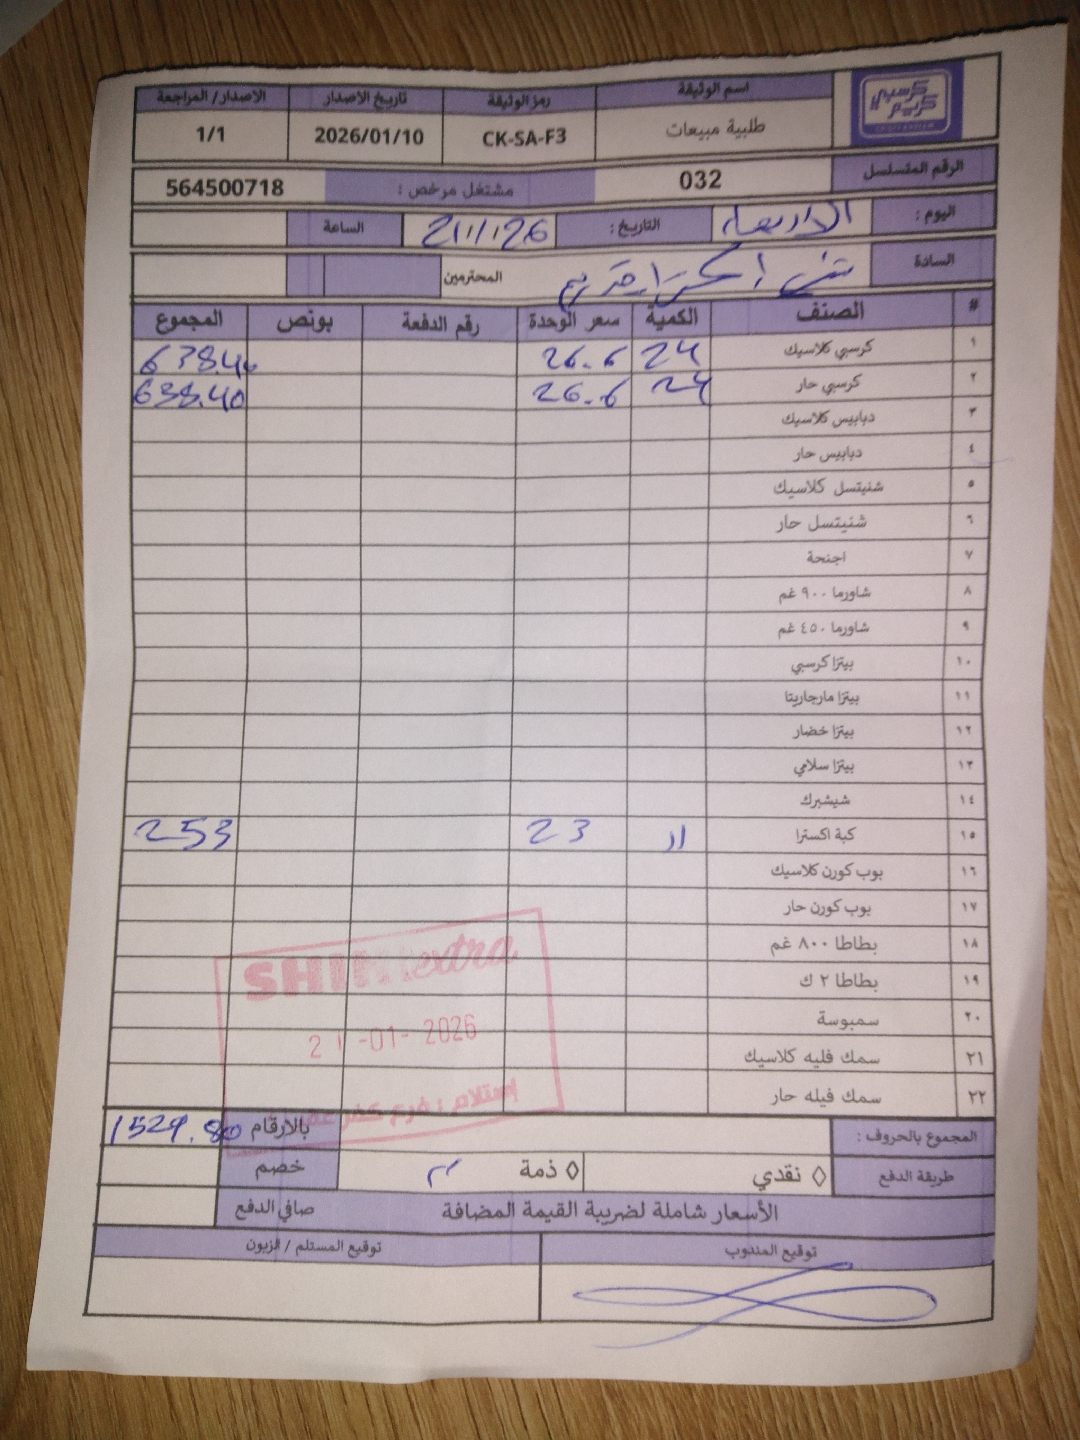 كرسبي كريم
اسم الوثيقة رمز الوثيقة تاريخ الاصدار الاصدار/ المراجعة
طلبية مبيعات CK-SA-F3 2026/01/10 1/1
الرقم المتسلسل 032 مشتغل مرخص : 564500718
اليوم : الاربعاء التاريخ : 21/1/26 الساعة
السادة المحترمين
# الصنف الكمية سعر الوحدة رقم الدفعة بونص المجموع
١ كرسبي كلاسيك 24 26.6 638.40
٢ كرسبي حار 24 26.6 638.40
٣ دبابيس كلاسيك
٤ دبابيس حار
٥ شنيتسل كلاسيك
٦ شنيتسل حار
٧ اجنحة
٨ شاورما ٩٠٠ غم
٩ شاورما ٤٥٠ غم
١٠ بيتزا كرسبي
١١ بيتزا مارجاريتا
١٢ بيتزا خضار
١٣ بيتزا سلامي
١٤ شيشبرك
١٥ كبة اكسترا 11 23 253
١٦ بوب كورن كلاسيك
١٧ بوب كورن حار
١٨ بطاطا ٨٠٠ غم
١٩ بطاطا ٢ ك
٢٠ سمبوسة
٢١ سمك فليه كلاسيك
٢٢ سمك فيله حار
extra
21 -01- 2026
إستلام : فرع كفر
المجموع بالحروف : بالارقام 1529.80
طريقة الدفع ◊ نقدي ◊ ذمة خصم
الأسعار شاملة لضريبة القيمة المضافة صافي الدفع
توقيع المندوب توقيع المستلم / الزبون